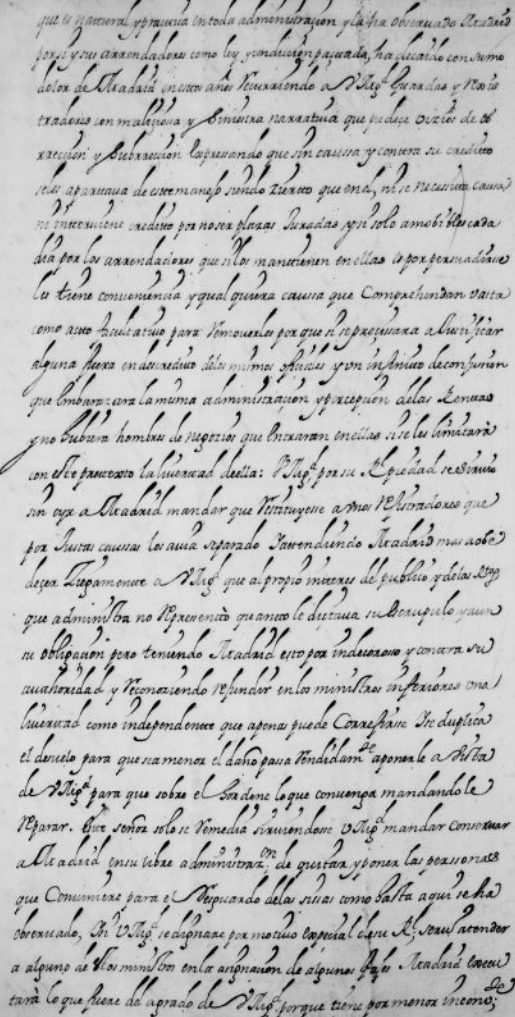 que es natural y precisa en toda administraçion y la ha observado Madrid
por si y sus arrendadores como ley y condicion pactada, ha decaido con sumo
dolor de Madrid en estos años recurriendo a V Magᵈ Guardas y Regis
tradores con maliçiosa y siniestra narrativa que padeçe viçios de ob
rrecçion y subrrecçion expressando que sin caussa y contra su credito
se les apartava de este manejo siendo zierto que en el, ni se necessita causa
ni interviene credito por no ser plazas Juradas y si solo amobibles cada
dia por los arrendadores que si los mantienen en ellas es por persuadirse
les tiene conveniencia y qualquiera caussa que Comprehendan vasta
como acto facultativo para removerlos por que si se precissara a Justificar
alguna fuera en descredito de los mismos ofiçiales y un infinito de confusion
que embarazara la misma administraçion y perçepçion de las Rentas
y no hubiera hombres de negozios que entraran en ellas si se les limitara
con este pretexto la livertad de ella: V Magᵈ por su Rˡ piedad se sirvio
sin oyr a Madrid mandar que restituyesse a unos rexistradores que
por Justas caussas los avia separado Y atendiendo Madrid mas a obe
deçer Ziegamente a V Magᵈ que al propio interes del publico y de las
que administra no representò quanto le dictava su escrupulo y aun
su obligaçion pero teniendo Madrid esto por indecoroso y contra su
authoridad y reconoziendo refundir en los ministros inferiores una
livertad como independente que apenas puede Corregirse se duplica
el desvelo para que sea menor el daño passa rendidamᵗᵉ a ponerle a vista
de V Magᵈ para que sobre el hordene lo que convenga mandandole
reparar. Este señor solo se remedia sirviendose V Magᵈ mandar conservar
a Madrid en su libre administrazᵒⁿ de quitar y poner las perssonas
que Conviniere para el resguardo de las sisas como hasta aqui se ha
observado, Y si V Magᵈ se dignare por motivo especial de su Rˡ serv atender
a alguno de los ministros en la asignacion de algunos Madrid execu
tarà lo que fuere del agrado de V Magᵈ porque tiene por menor inconvᵈᵉ